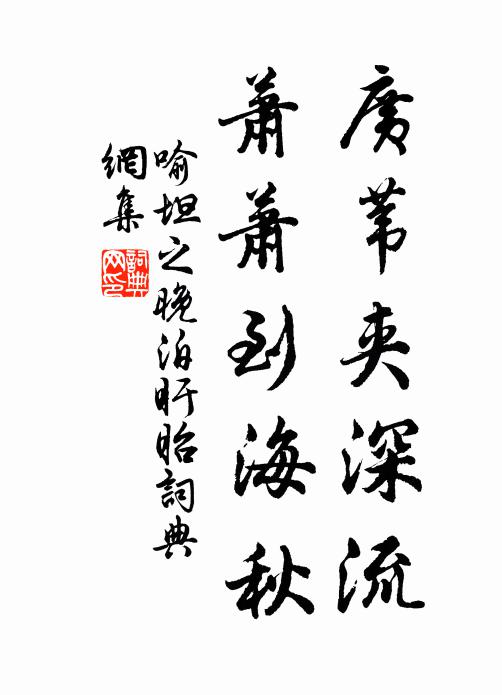 廣葦夾深流
蕭蕭到海秋
喻坦之晚泊盱眙詞典
網集
詞典
网印